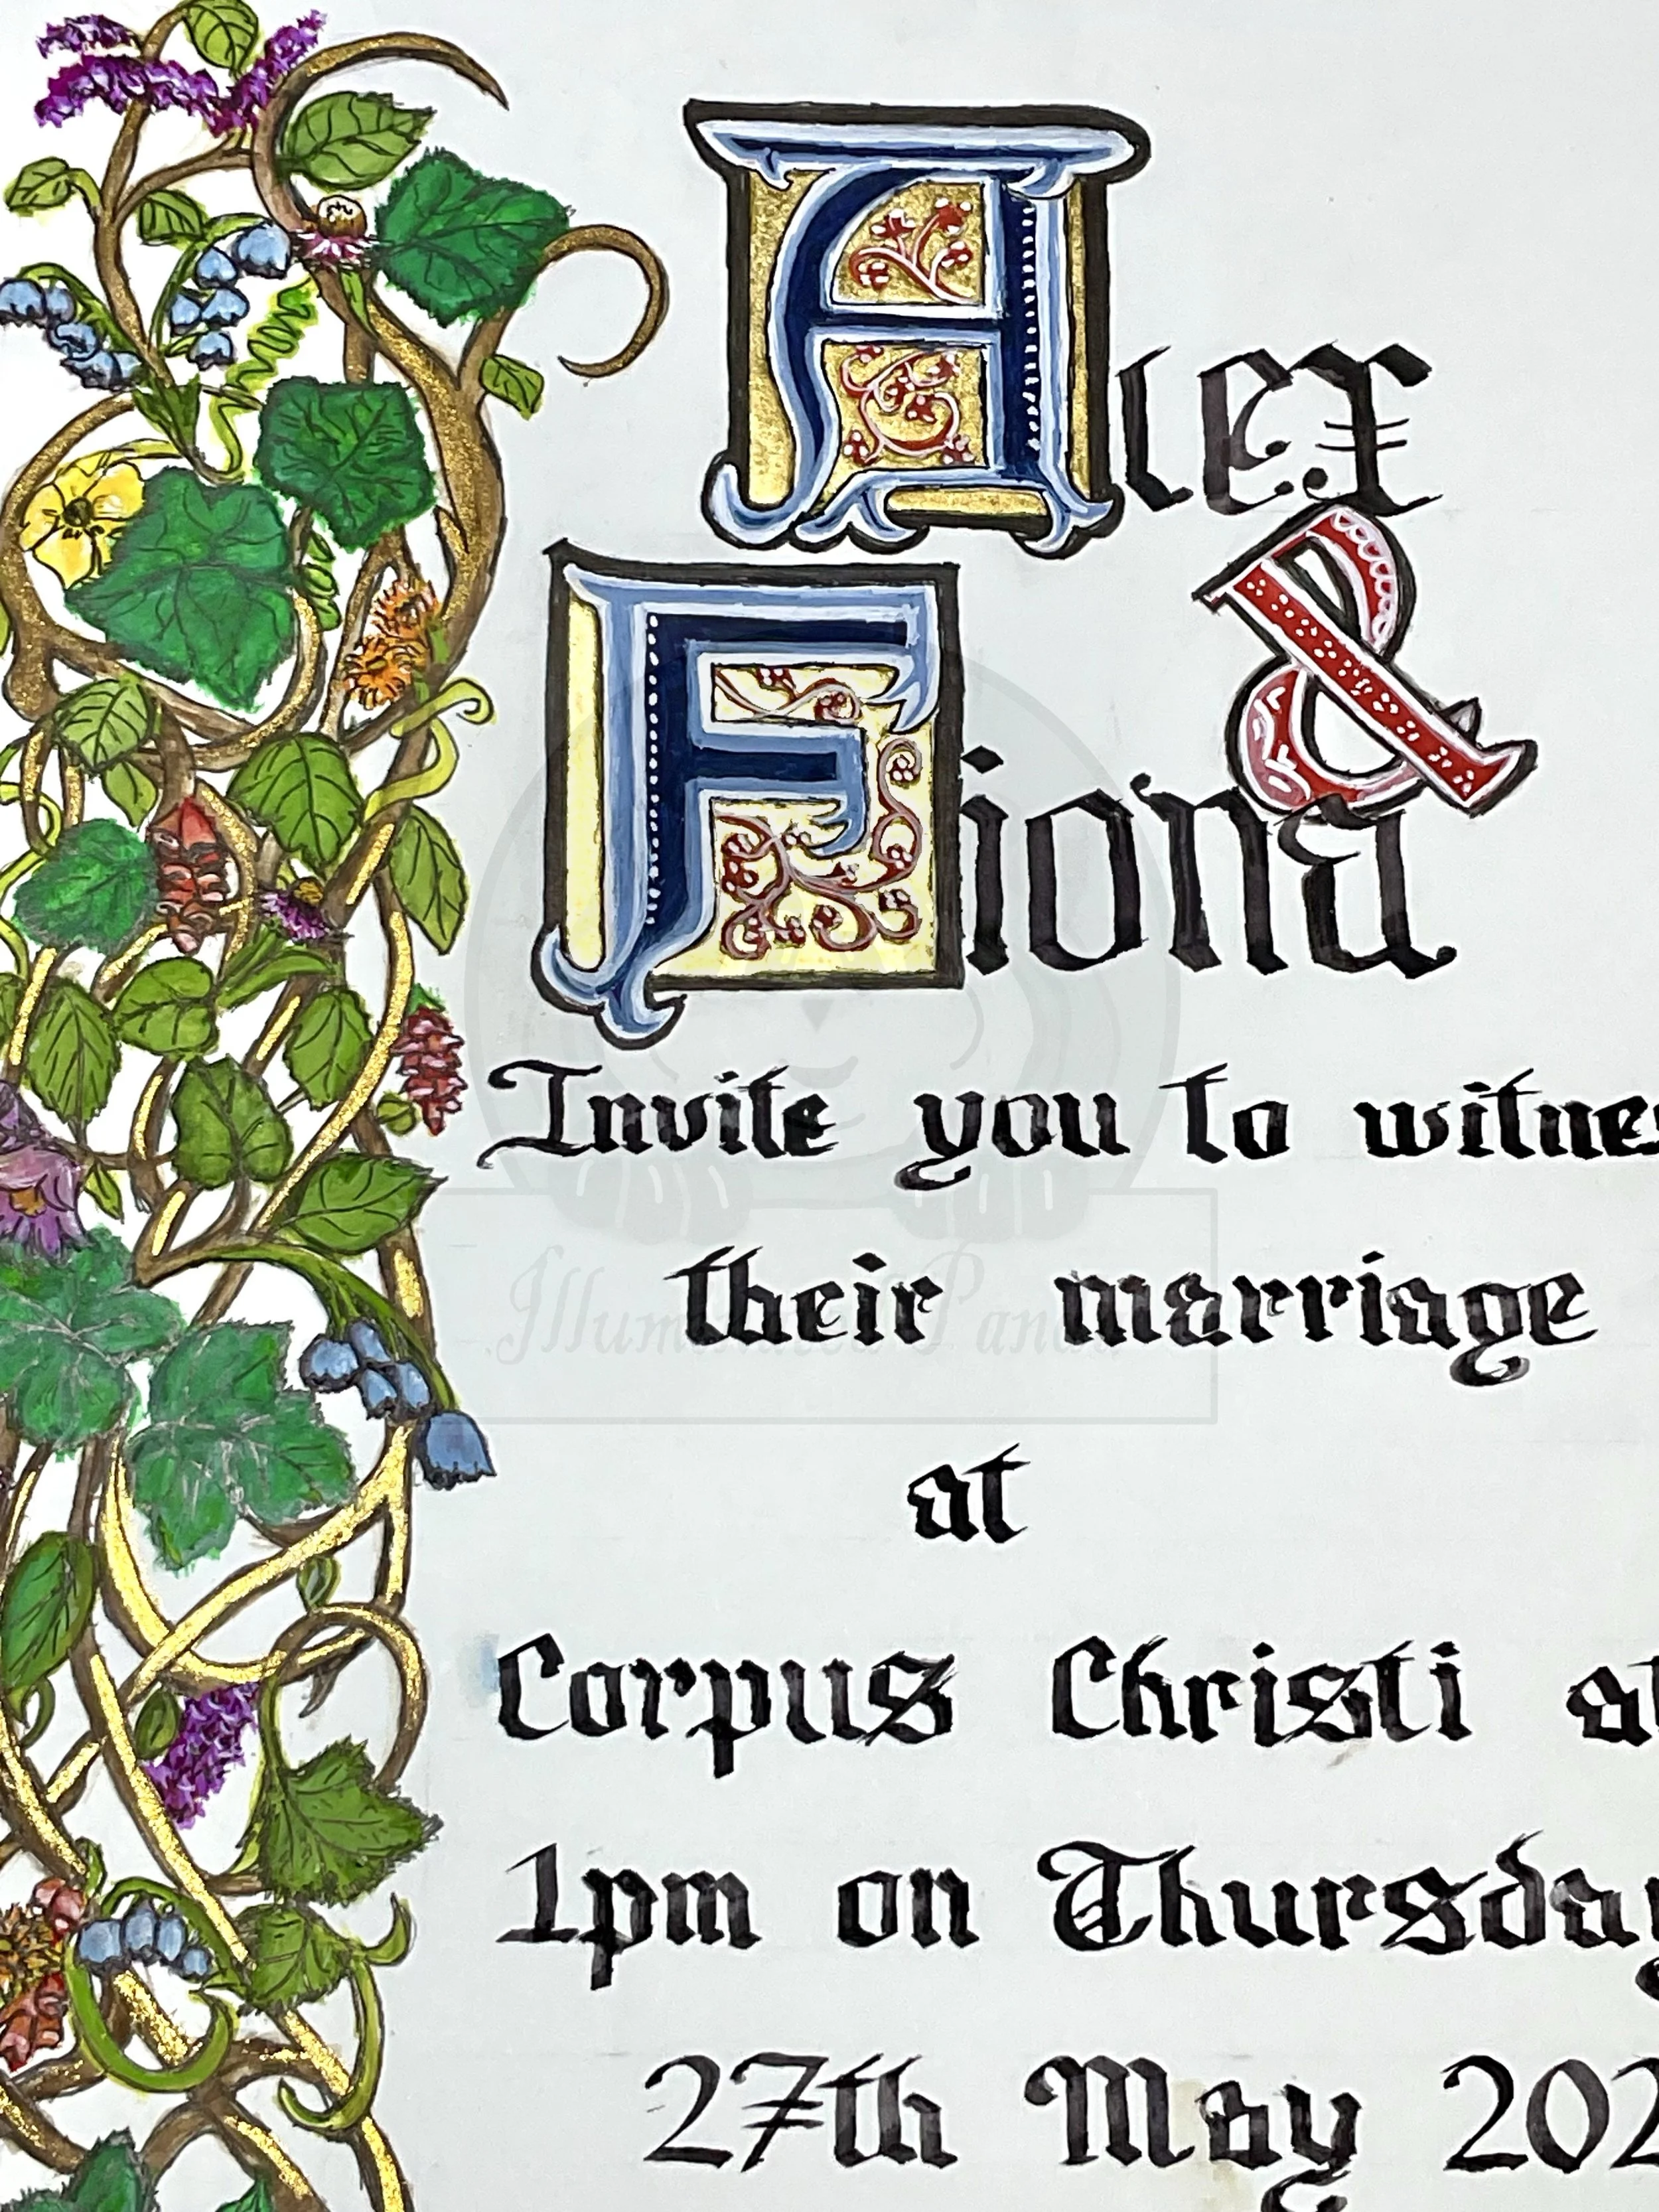 Alex
&
Fiona
Invite you to witnes
their marriage
at
Corpus Christi at
1pm on Thursday
27th May 202
Illuminated Panda